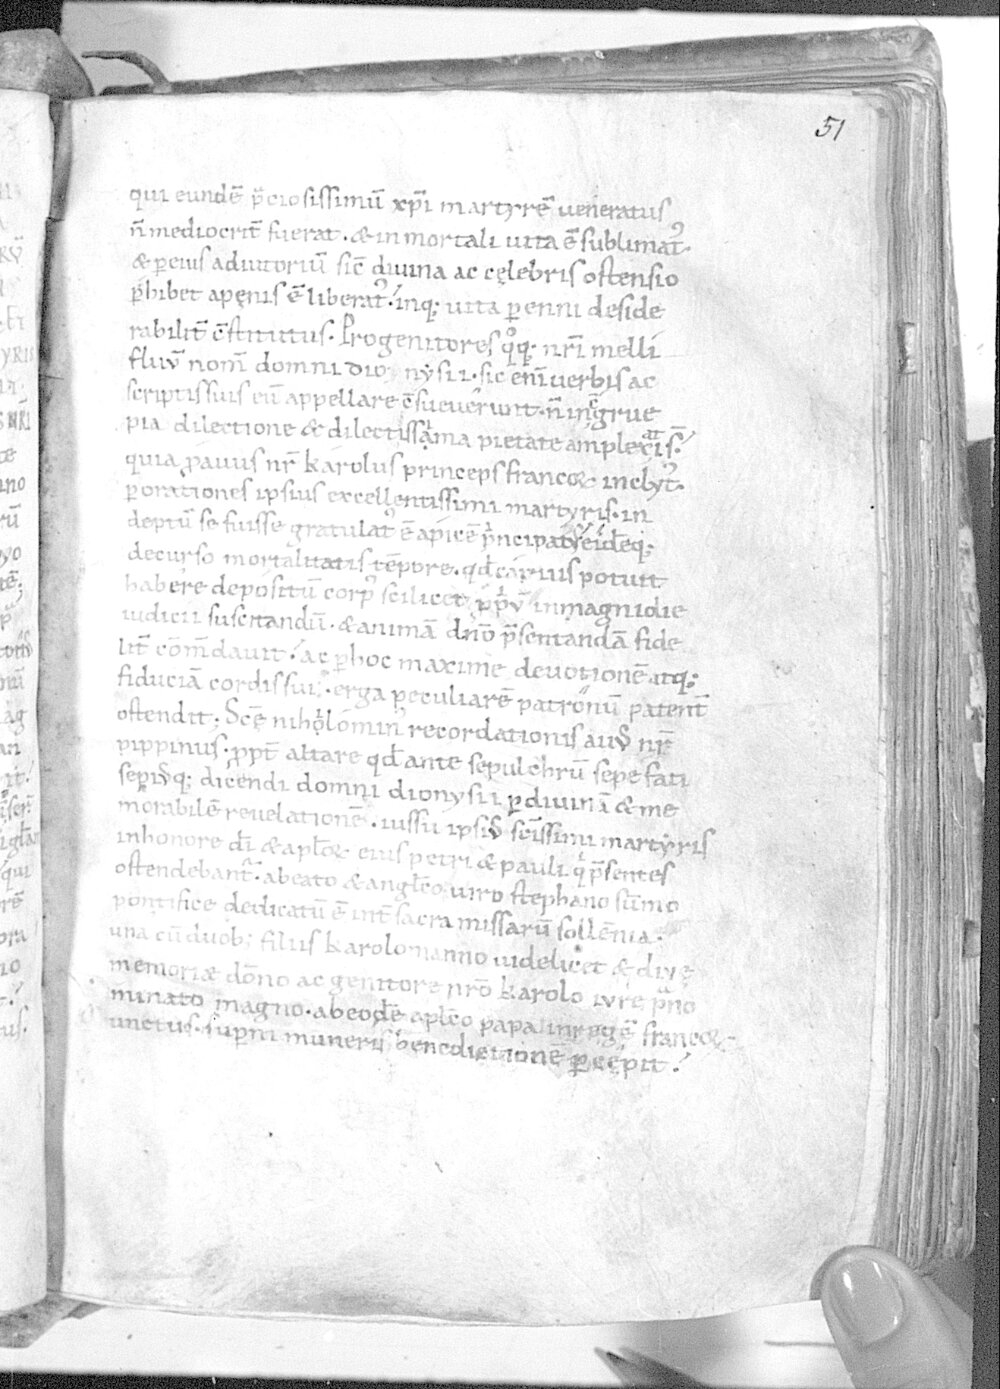 51
qui eundē p̄ciosissimū xp̄i martyrē ueneratus
n̄ mediocrit̄ fuerat. & in mortali uita ē sublimat᾽.
& p eius adiutoriū sic̄ diuina ac cęlebris ostensio
p̄hibet a pęnis ē liberat᾽. inq; uita p enni deside
rabilit̄ c̄stitutus. Progenitores q̊q; nr̄i melli
fluū nom̄ domni dionysii. sic eni uerbis ac
scriptis suis eū appellare c̄sueuerunt. n̄ in
pia dilectione & dilectissima pietate
quia pauus nr̄ karolus princeps francoꝝ inclyt᾽.
p orationes ipsius excellentissimi martyris. in
deptū se fuisse gratulat᾽ ē apicē
decurso mortalitatis tēpore. qd̄ carius potuit
habere depositū corp᾽ scilicet ppiū in magni die
iudicii suscitandū. & animā dn̄o p̄sentandā fide
lit̄ cōm̄dauit. ac p hoc maxime deuotionē atq;
fiduciā cordis sui. erga peculiarē patronū patent̄
ostendit. Scē niholomin᾽ recordationis auus nr̄
pippinus. ppt̄ altare qd̄ ante sepulchrū sepe fati
sepiusq; dicendi domni dionysii p diuinā & me
morabilē reuelationē. iussu ipsius sc̄issimi martyris
in honore dī & apl̄oꝝ eius petri & pauli. qi p̄sentes
ostendebant᾽. a beato & angl̄co uiro stephano sūmo
pontifice dedicatū ē int̄ sacra missarū sollēnia.
una cū duob; filiis karolomanno uidelicet & diuę
memoriæ dōno ac genitore nr̄o karolo iure p̄no
minato magno. ab eodē apl̄co papa in regē francoꝝ
unctus. supni muneris benedictionē pcępit.